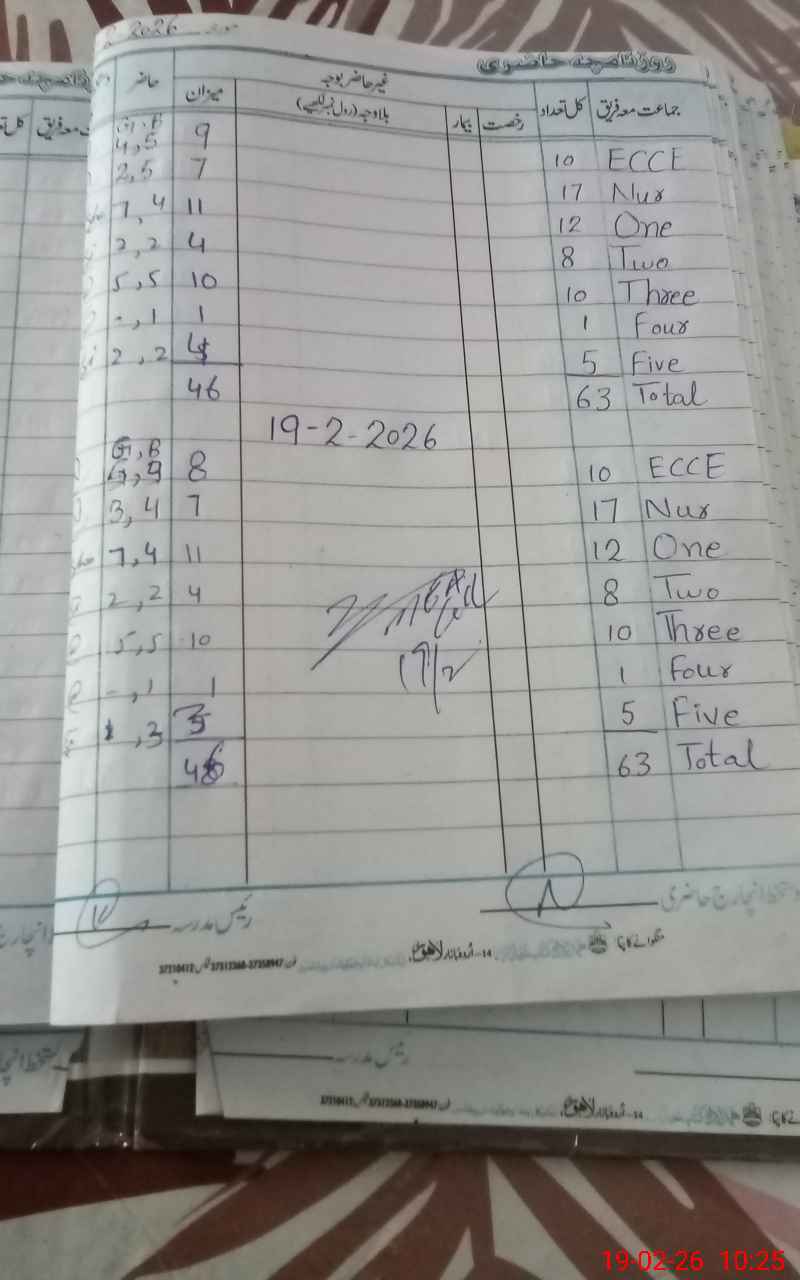 2 2026
روزنامچہ حاضری
جماعت معہ فریق کل تعداد غیر حاضر بوجہ حاضر
رخصت بیمار بلا وجہ (رول نمبر لکھیے) میزان
G, B
ECCE 10 4,5 9
Nur 17 2,5 7
One 12 7,4 11
Two 8 2,2 4
Three 10 5,5 10
Four 1 -,1 1
Five 5 2,2 4
Total 63 46
19-2-2026
G, B
ECCE 10 8
Nur 17 3,4 7
One 12 7,4 11
Two 8 2,2 4
Three 10 5,5 10
Four 1 -,1 1
Five 5 ,3
Total 63
19/2
دستخط انچارج حاضری رئیس مدرسہ
اُردو بازار لاہور
رئیس مدرسہ
اُردو بازار لاہور
19-02-26 10:25